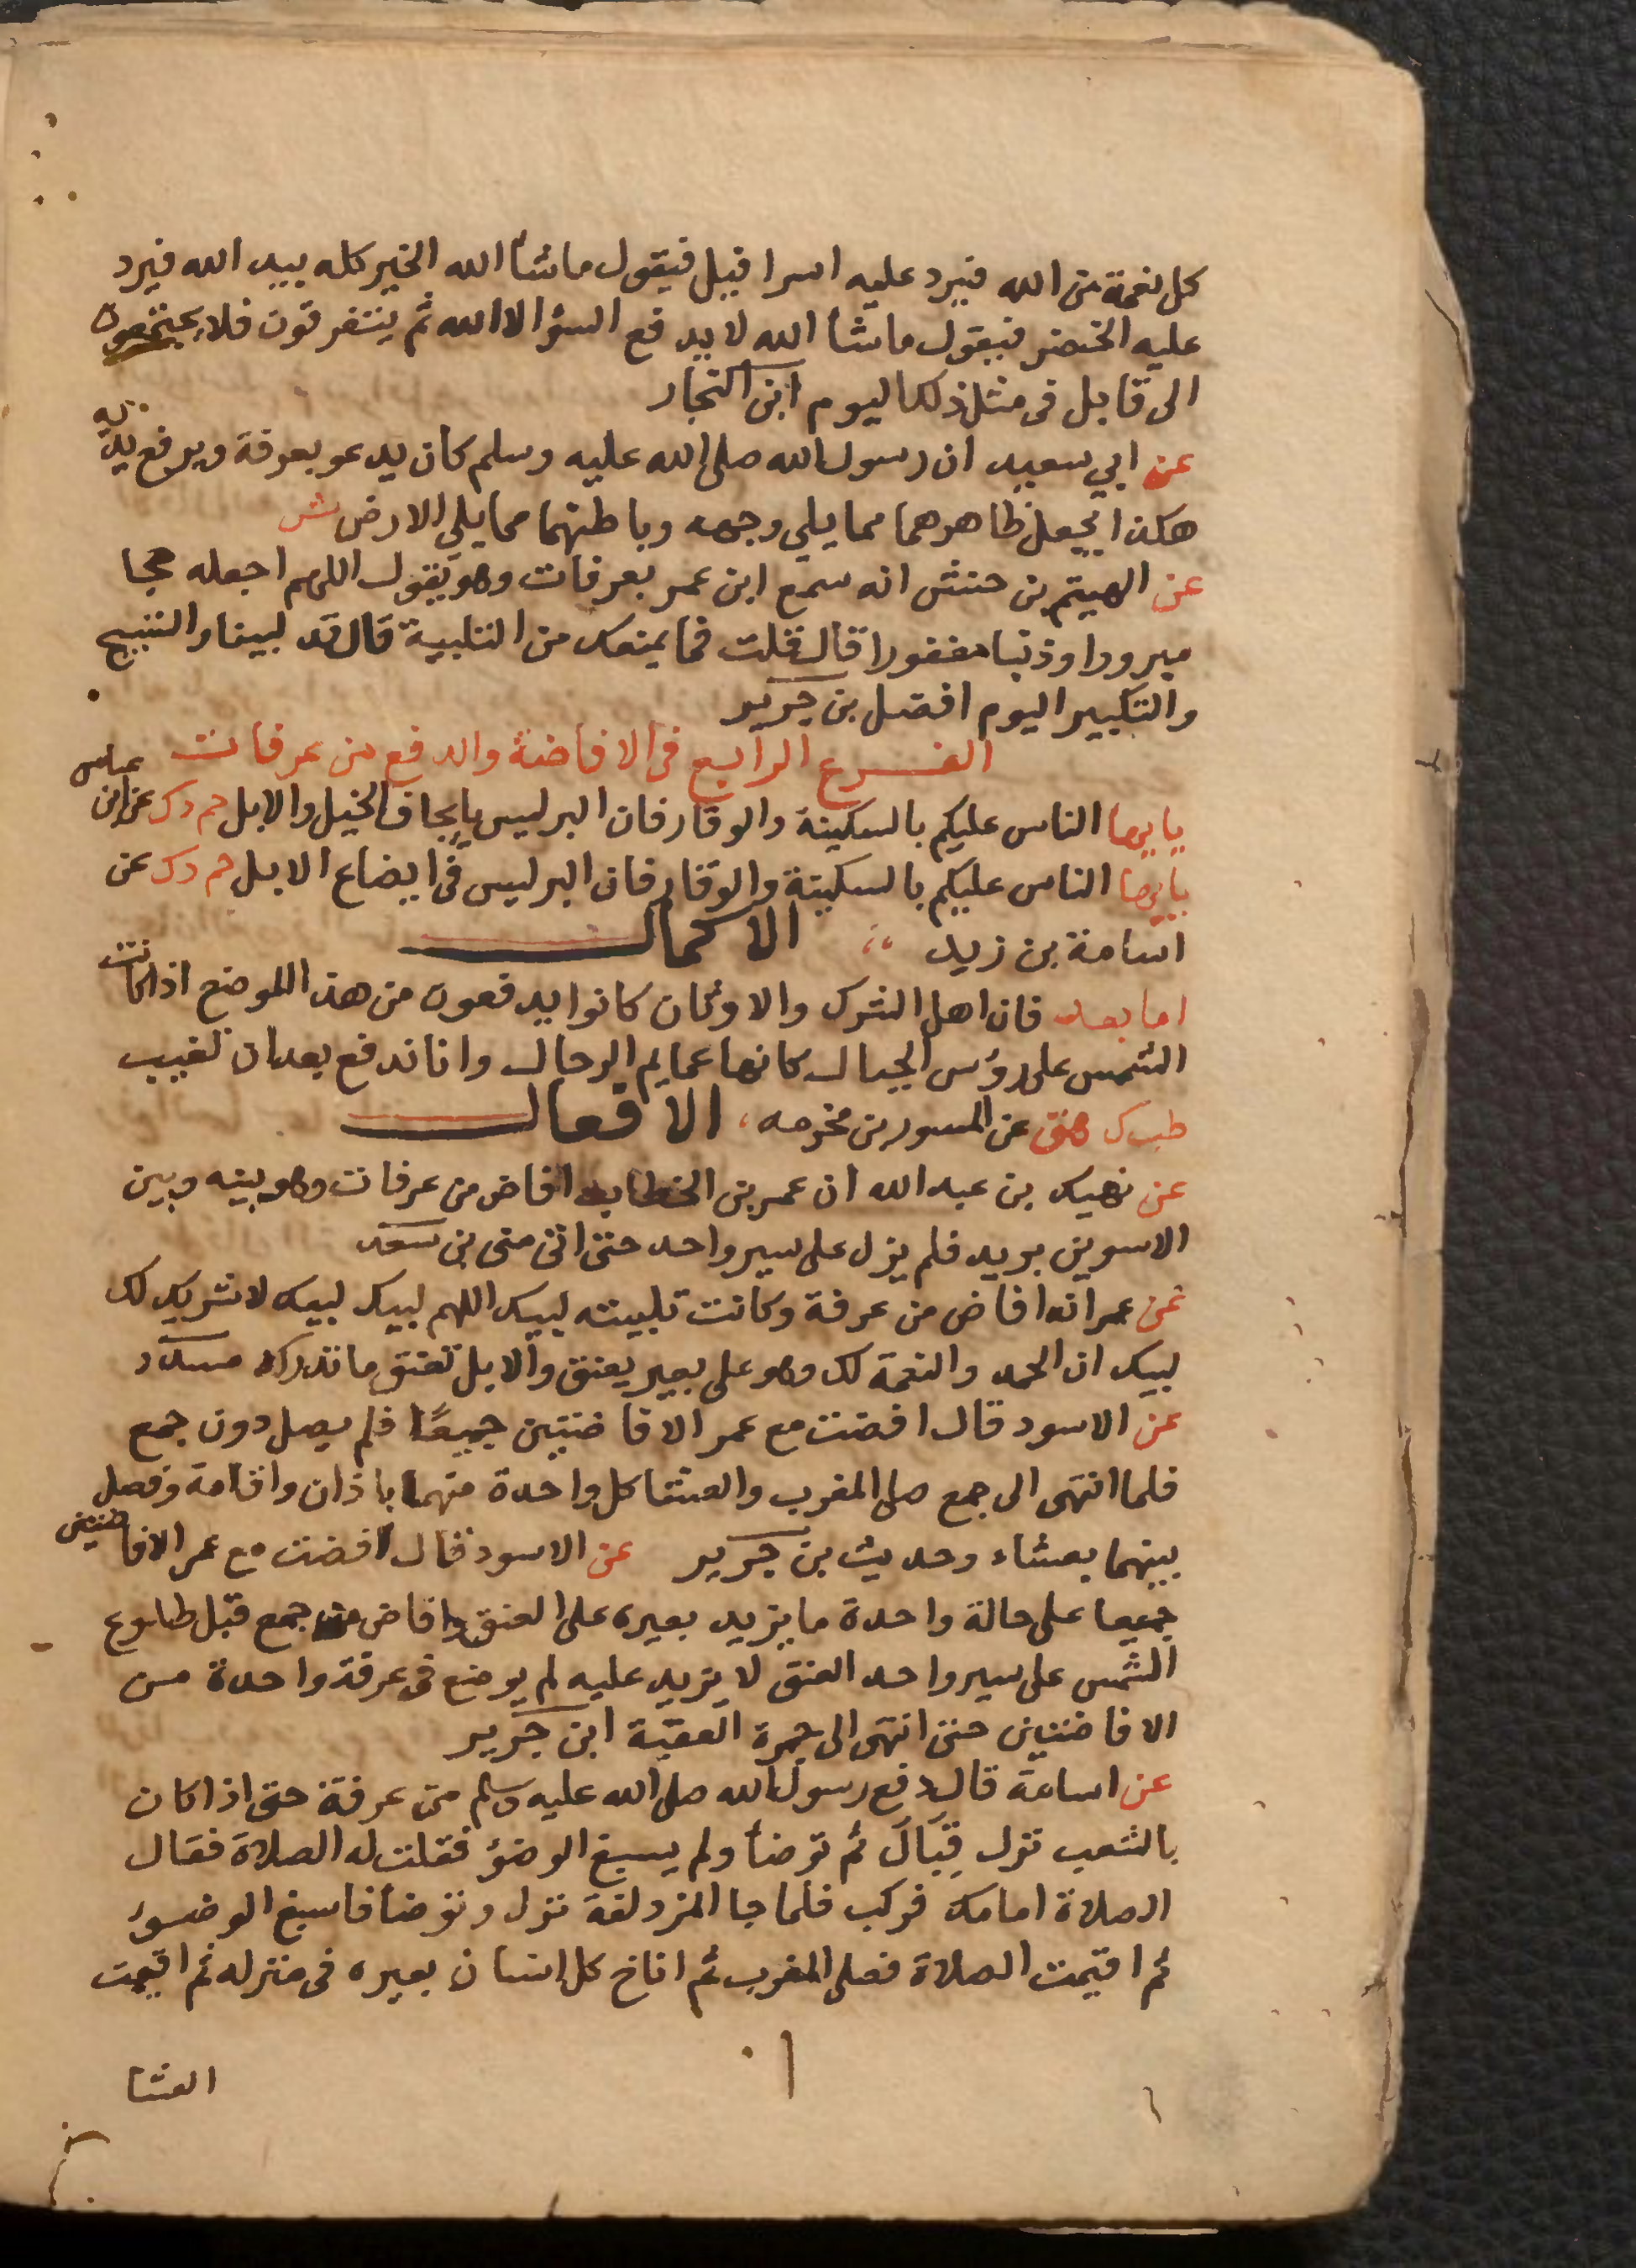 كل نعمة من الله فيرد عليه اسرافيل فيقول ماشا الله الخير كله بيد الله فيرد
عليه الخضر فيقول ماشا الله لا يدفع السؤ الا الله ثم يتفرقون فلا يجتمعون
الى قابل فى مثل ذلك اليوم ابن النجار
عن ابي سعيد ان رسول الله صلى الله عليه وسلم كان يدعو بعرفة ويرفع يديه
هكذا يجعل ظاهرهما مما يلي وجهه وباطنهما مما يلي الارض ش
عن الهيتم بن حنش انه سمع ابن عمر بعرفات وهو يقول اللهم اجعله حجا
مبرورا وذنبا مغفورا قال قلت فما يمنعك من التلبية قال قد لبينا والتسبيح
والتكبير اليوم افضل بن جرير
الفرع الرابع فى الافاضة والدفع من عرفات
يايها الناس عليكم بالسكينة والوقار فان البر ليس بايجاف الخيل والابل حم د ك عن ابن عباس
يايها الناس عليكم بالسكينة والوقار فان البر ليس فى ايضاع الابل حم د ك عن
اسامة بن زيد الاكمال
اما بعد فان اهل الشرك والاوثان كانوا يدفعون من هذا الموضع اذا كانت
الشمس على رؤس الجبال كانها عمايم الرجال وانا ندفع بعد ان تغيب
طب ك هق عن المسور بن مخرمه الافعال
عن نهيك بن عبد الله ان عمر بن الخطاب افاض من عرفات وهو بينه وبين
الاسود بن يريد فلم يزل على سير واحد حتى اتى منى بن سعد
عن عمر انه افاض من عرفة وكانت تلبيته لبيك اللهم لبيك لبيك لا شريك لك
لبيك ان الحمد والنعمة لك وهو على بعير يعنق والابل تعنق ما تدركه مسدد
عن الاسود قال افضت مع عمر الافاضتين جميعًا فلم يصل دون جمع
فلما انتهى الى جمع صلى المغرب والعشا كل واحدة منهما باذان واقامة وفصل
بينهما بعشاء وحديث بن جرير عن الاسود قال افضت مع عمر الافاضتين
جميعا على حالة واحدة ما يزيد بعيره على العنق وافاض من جمع قبل طلوع
الشمس على سير واحد العنق لا يزيد عليه لم يوضع فى عرفة واحدة من
الافاضتين حتى انتهى الى جمرة العقبة ابن جرير
عن اسامة قال دفع رسول الله صلى الله عليه وسلم من عرفة حتى اذا كان
بالشعب نزل فبال ثم توضأ ولم يسبغ الوضؤ فقلت له الصلاة فقال
الصلاة امامك فركب فلما جا المزدلفة نزل وتوضأ فاسبغ الوضوء
ثم اقيمت الصلاة فصلى المغرب ثم اناخ كل انسان بعيره فى منزله ثم اقيمت
العشا